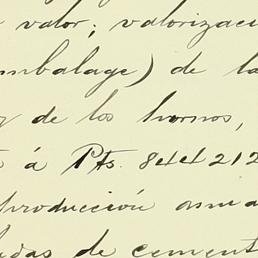 valor; valorizaci
mbalage) de la
y de los hornos,
á Pts. 8441212
producción anua
ladas de cement